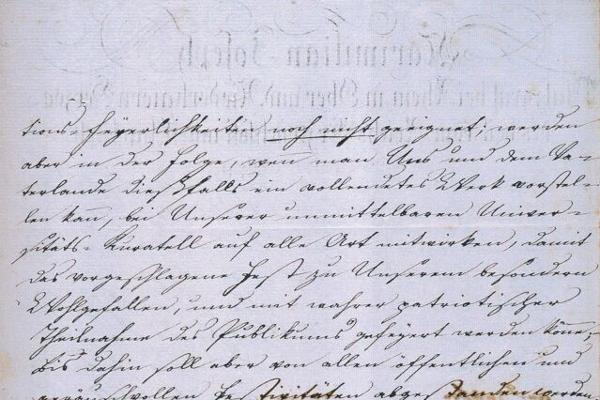 Maximilian Joseph
bei Rhein in Ober und Niederbaiern
tions-Feyerlichkeiten noch nicht geeignet; werden
aber in der Folge, wen man Uns und dem Va-
terlande dießfalls ein vollendetes Werk vorstel-
len kan, bei Unserer unmittelbaren Univer-
sitäts-Kuratell auf alle Art mitwirken, damit
das vorgeschlagene Fest zu Unserem besondern
Wohlgefallen, und mit wahrer patriotischer
Theilnahme des Publikums gefeyert werden köne;
bis dahin soll aber von allen öffentlichen und
geräuschvollen Festivitäten abgestanden werden.